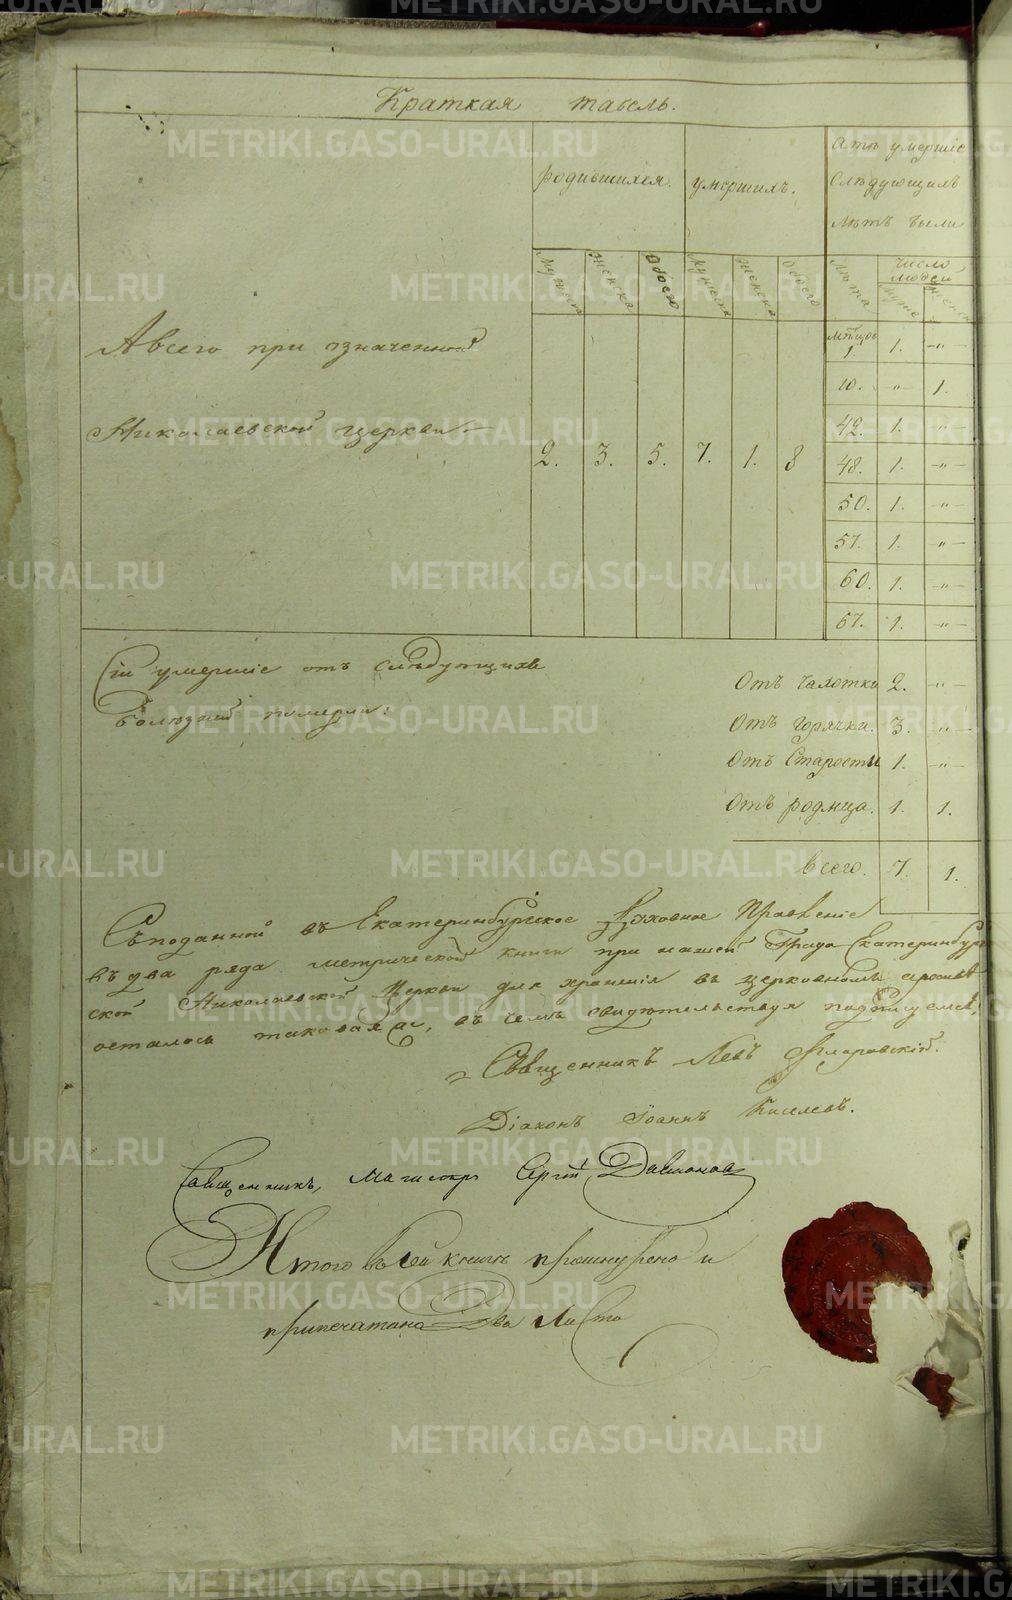 Краткая табель.
родившихся. умершихъ. а тѣ умершіе
слѣдующихъ
лѣтъ были
Мужеска Женска Обоего Мужеска Женска Обоего Лѣта Число людей
Муже Женск
А всего при означенной
Николаевской церкви
2. 3. 5. 7. 1. 8
мѣсцовъ 1 1. -"-
10. " 1.
42. 1. -"-
48. 1. -"-
50. 1. -"-
57. 1. -"-
60. 1. -"-
67. 1. -"-
Сіи умершіе отъ слѣдующихъ
болѣзней померли:
Отъ чахотки 2. -"-
Отъ горячки. 3. -"-
Отъ Старости 1. -"-
Отъ родимца. 1. 1.
Всего. 7. 1.
Съ поданной въ Екатеринбургское Духовное Правленіе
въ два ряда метрической книги при нашей Града Екатеринбург
ской Николаевской Церкви для храненія въ церковномъ архивѣ
осталась таковая, въ чемъ свидѣтельствуя подписуемся,
Священникъ Левъ Флоровскій.
Діаконъ Іоаннъ Киселевъ.
Священникъ, Магистръ Сергій
Итого въ сей книгѣ прошнурено и
припечатано Два листа
METRIKI.GASO-URAL.RU